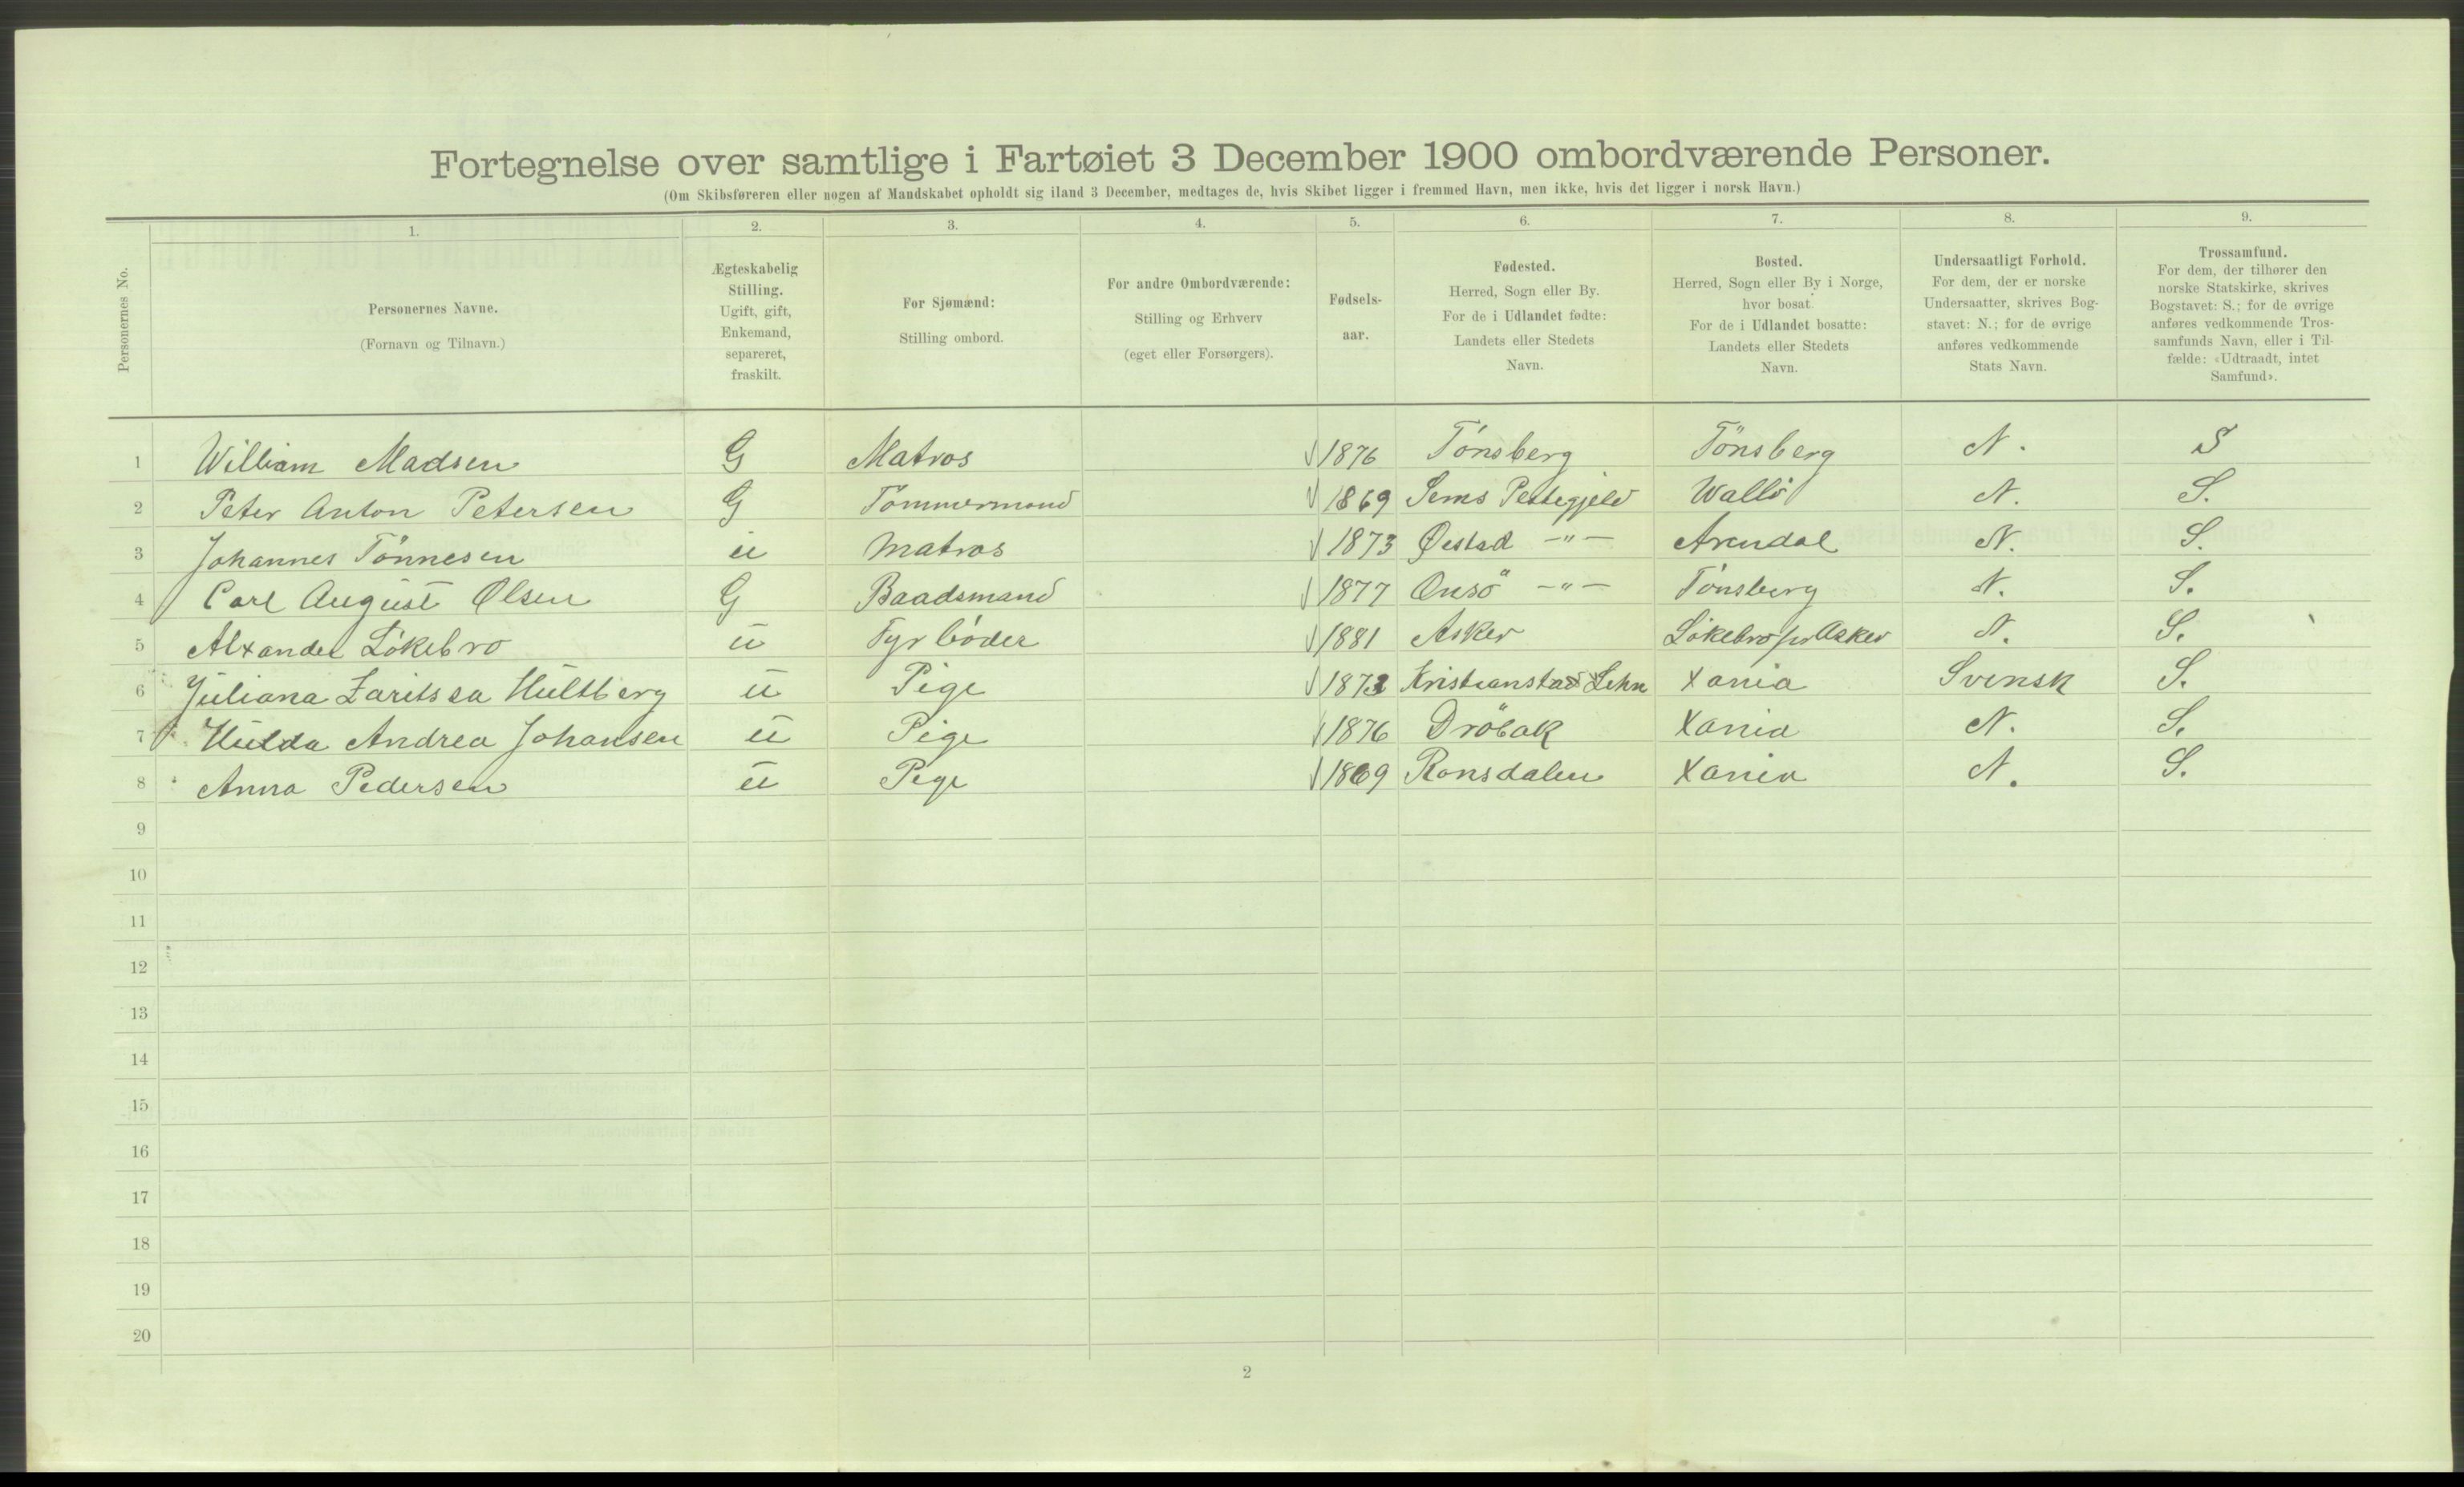 Fortegnelse over samtlige i Fartøiet 3 December 1900 ombordværende Personer.
(Om Skibsføreren eller nogen af Mandskabet opholdt sig iland 3 December, medtages de, hvis Skibet ligger i fremmed Havn, men ikke, hvis det ligger i norsk Havn.)
1. 2. 3. 4. 5. 6. 7. 8. 9.
Personernes No.
Personernes Navne.
(Fornavn og Tilnavn.)
Ægteskabelig
Stilling.
Ugift, gift,
Enkemand,
separeret,
fraskilt.
For Sjømænd:
Stilling ombord.
For andre Ombordværende:
Stilling og Erhverv
(eget eller Forsørgers).
Fødsels-
aar.
Fødested.
Herred, Sogn eller By.
For de i Udlandet fødte:
Landets eller Stedets
Navn.
Bosted.
Herred, Sogn eller By i Norge,
hvor bosat.
For de i Udlandet bosatte:
Landets eller Stedets
Navn.
Undersaatligt Forhold.
For dem, der er norske
Undersaatter, skrives Bog-
stavet: N.; for de øvrige
anføres vedkommende
Stats Navn.
Trossamfund.
For dem, der tilhører den
norske Statskirke, skrives
Bogstavet: S.; for de øvrige
anføres vedkommende Tros-
samfunds Navn, eller i Til-
fælde: «Udtraadt, intet
Samfund».
1 William Madsen G Matros 1876 Tönsberg Tönsberg N. S
2 Peter Anton Petersen G Tömmermand 1869 Sems Pestegjeld Wallö N. S.
3 Johannes Tönnesen u Matros 1873 Øestad -"- Arendal N. S.
4 Carl August Olsen G Baadsmand 1877 Onsö -"- Tönsberg N. S.
5 Alxander Lökebro u Fyrböder 1881 Asker Lökebro pr Asker N. S.
6 Juliana Laritssa Hultberg u Pige Kristianstad Lehn Xania Svensk S.
7 Hulda Andrea Johansen u Pige 1876 Dröbak Xania N. S.
8 Anna Pedersen u Pige 1869 Ronsdalen Xania N. S.
9
10
11
12
13
14
15
16
17
18
19
20
2